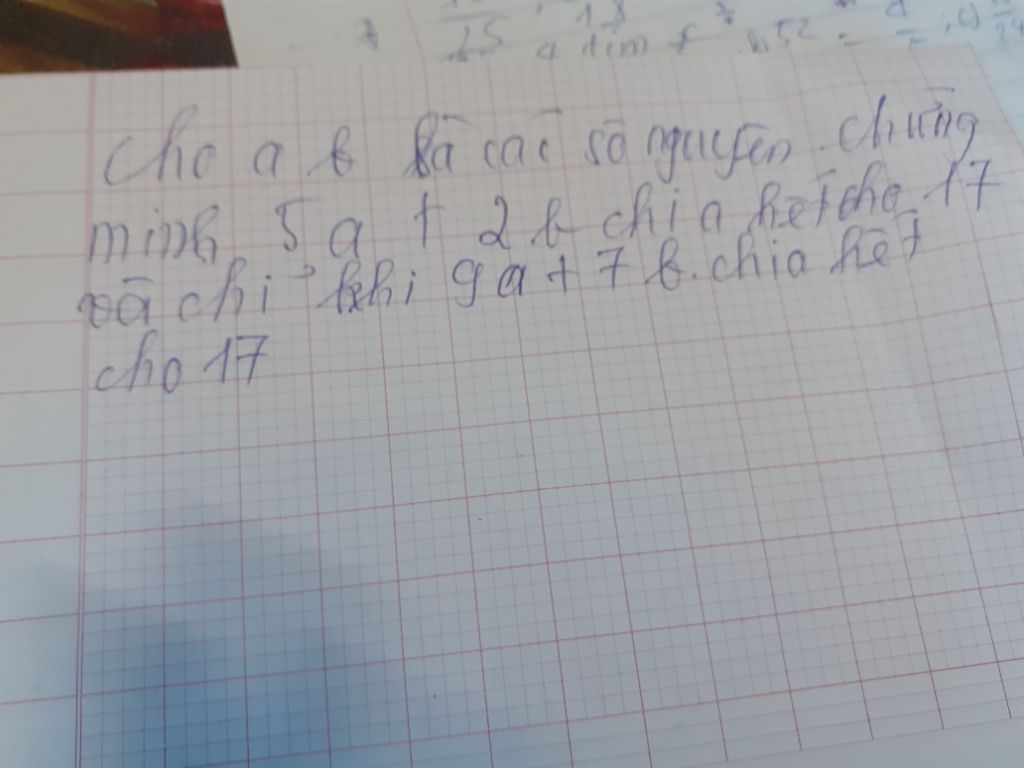 25 18
a tìm
cho a b là các số nguyên. chứng
minh 5a + 2b chia hết cho 17
và chỉ khi 9a + 7b. chia hết
cho 17